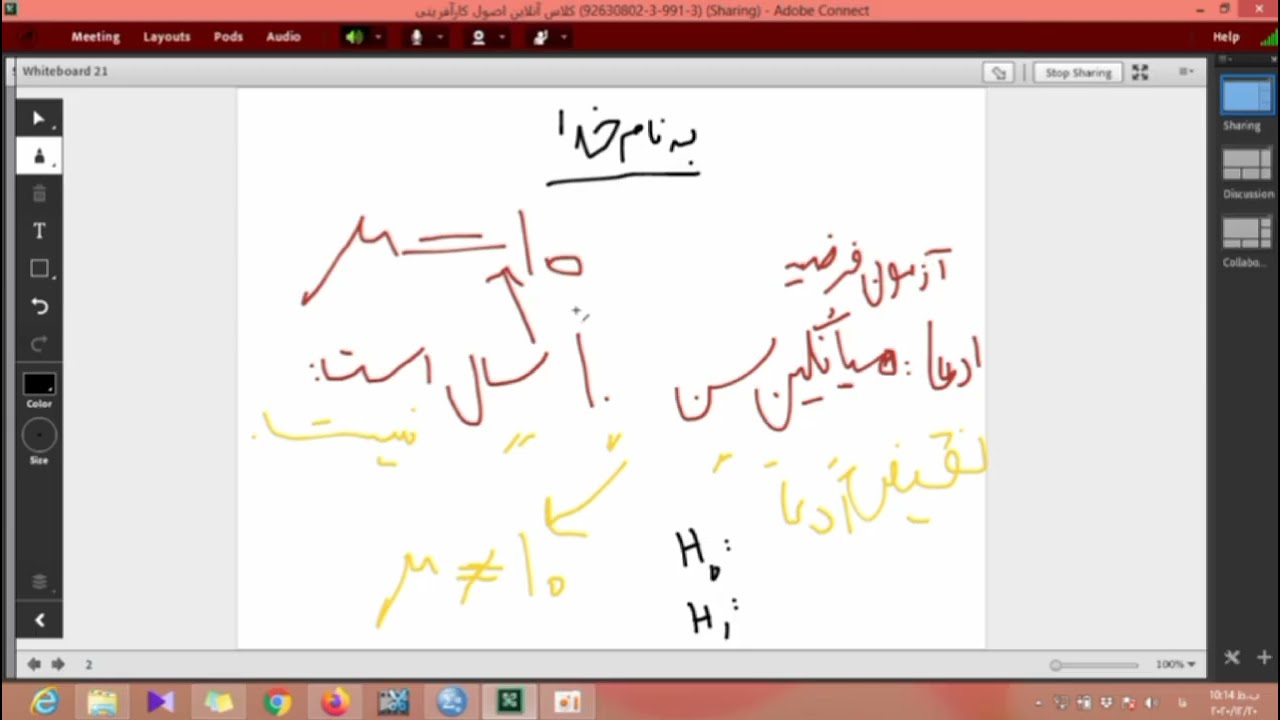 کلاس آنلاین اصول کارآفرینی (92630802-3-991-3) (Sharing) - Adobe Connect
Meeting Layouts Pods Audio Help
Whiteboard 21
Stop Sharing
Sharing
Discussion
Collabo...
T
Color
Size
به نام خدا
μ = 10
آزمون فرضیه
ادعا: میانگین سن ۱۰ سال است:
نقیض ادعا " " " " نیست.
μ ≠ 10
H0:
H1:
2
100%
10:14 ب.ظ
۲۰۲۰/۱۲/۲۰